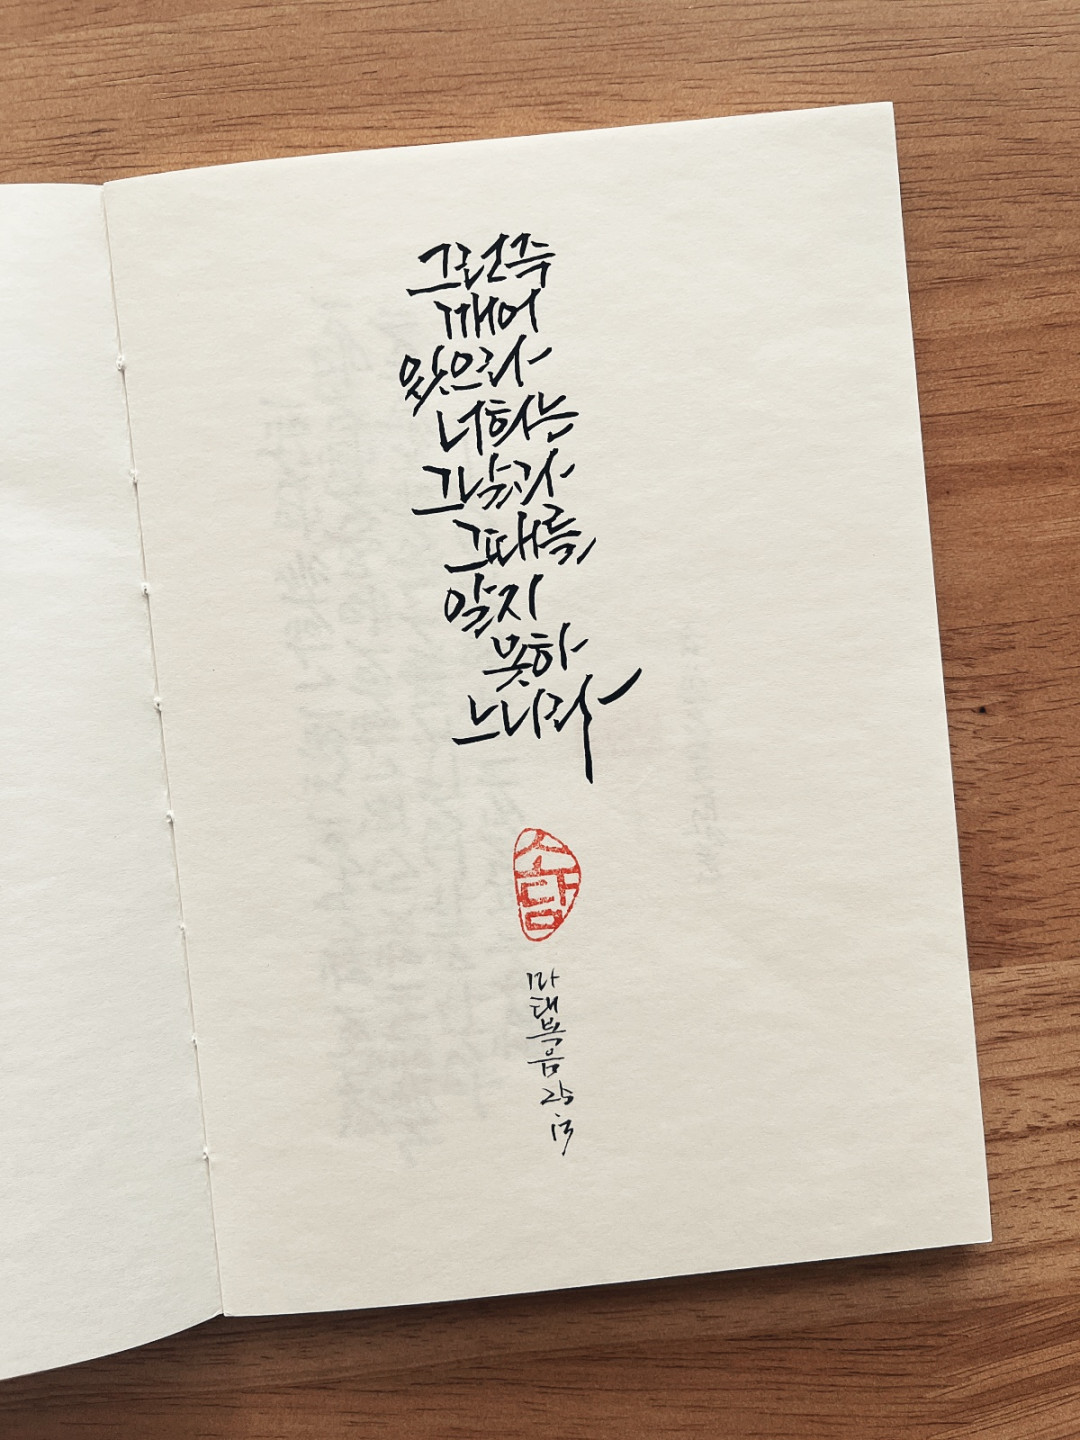 그런즉
깨어
있으라
너희는
그날과
그때를
알지
못하
느니라
소담
마태복음 25:13